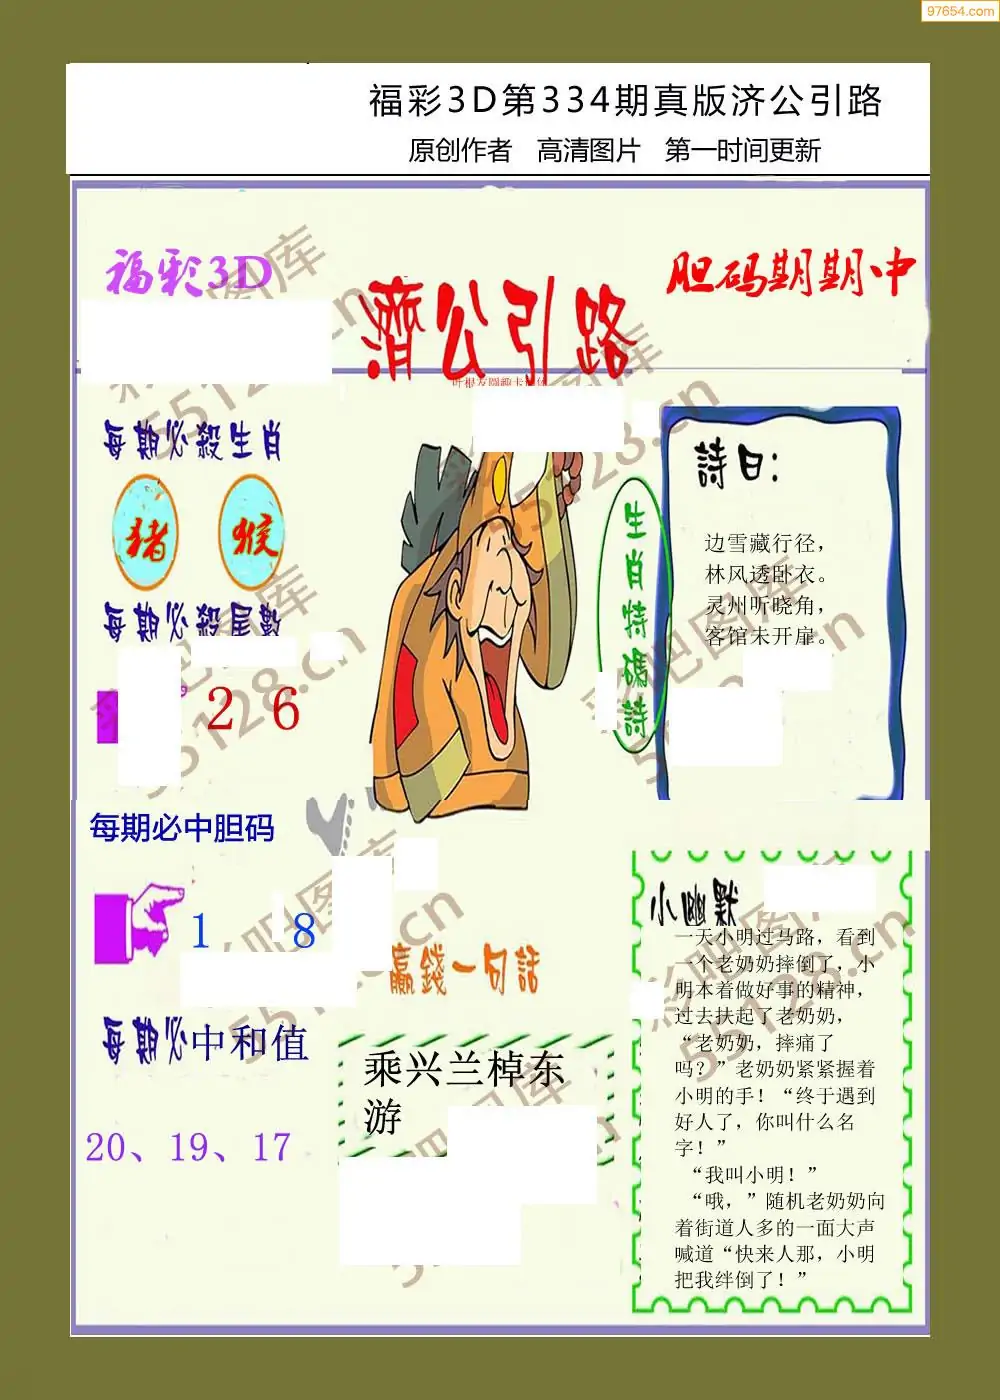 97654.com
福彩3D第334期真版济公引路
原创作者 高清图片 第一时间更新
福彩3D
濟公引路
胆码期期中
每期必殺生肖
猪 猴
每期必殺尾數
2 6
生肖特碼詩
詩曰：
边雪藏行径，
林风透卧衣。
灵州听晓角，
客馆未开扉。
每期必中胆码
1 8
每期必中和值
20、19、17
贏錢一句話
乘兴兰棹东
游
小幽默
一天小明过马路，看到
一个老奶奶摔倒了，小
明本着做好事的精神，
过去扶起了老奶奶，
“老奶奶，摔痛了
吗？”老奶奶紧紧握着
小明的手！“终于遇到
好人了，你叫什么名
字！”
“我叫小明！”
“哦，”随机老奶奶向
着街道人多的一面大声
喊道“快来人那，小明
把我绊倒了！”
彩吧图库
55128.cn